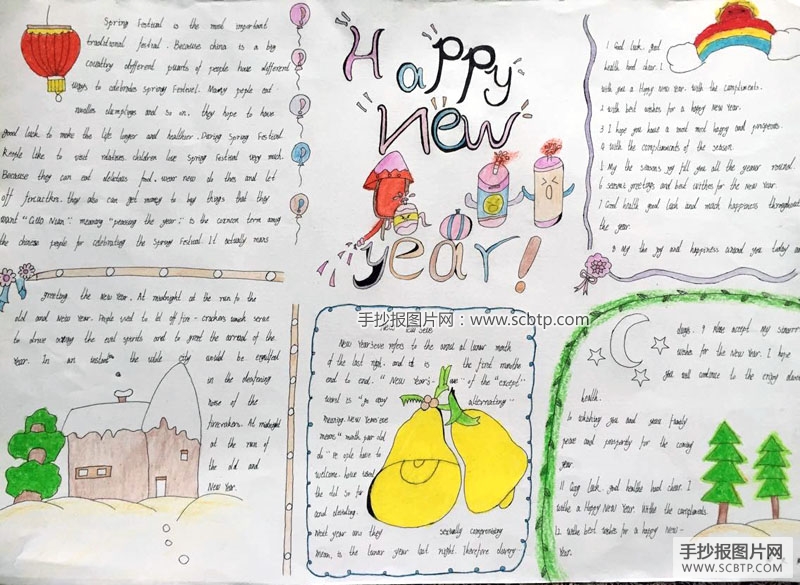 Spring Festival is the most important
traditional festival. Because china is a big
country different of people have different
ways to celebrates spring Festival. Many people eat
noodles dumplings and so on. they hope to have
good luck to make the life longer and healthier. During Spring Festival
People like to visit relatives. children love Spring Festival very much.
Because they can eat delicious food. wear new do thes and let
off they also can get money to buy things that they
want "Guo Nian" meaning "passing the year;" is the common term among
the chinese people for celebrating the Spring Festival. It actually means
greeting the New Year. At midnight at the run to the
old and New Year. People used to let of fire-crackers which serve
to drive away the evil spends and to greet the arrival of the
Year. In an instant the whole city would be engulfed
in the deafening
noise of the
firecrackers. At midnight
at the run of
the old and
New Year.
Happy
new
year!
New Year's eve refers to the lunar month
of the last night. and it is the first months
end to end. "New Year's eve" of the "except"
word is "alternating"
meaning. New Years eve
means "month
welcome.
the old so far
and
Next year and they
mean, is the lunar year last night. Therefore
1 Good luck, good
health hood cheer. I
wish you a Happy new Year. With the compliments.
2 with best wishes for a happy new Year.
3 I hope you have a most happy and prosperous.
4 with the compliments of the season.
5 My the seasons joy fill you all the year round.
6 seasons greetings and best withes for the new Year.
7 Good health good luck and much happiness throughout
the year.
8 My the joy and happiness around you today and
days. 9 Please accept my
wishes for the New Year. I hope
you will continue to the enjoy
health.
10 wishing you and your family
peace and prosperity for the coming
year
11 Good luck, good healthe hood cheer. I
withe a Happy New Year. Withe the compliments.
12 withe best wishes for a happy new-
Year.
手抄报图片网：www.scbtp.com
手抄报图片网
WWW.SCBTP.COM